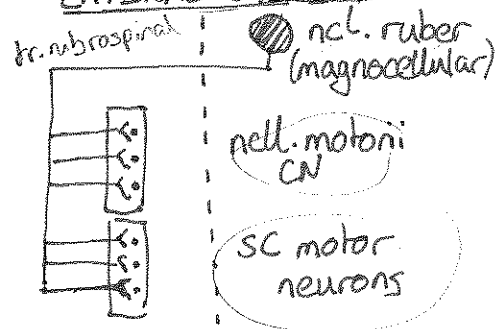 tr. rubrospinal
ncl. ruber
(magnocellular)
ncll. motorii
CN
SC motor
neurons